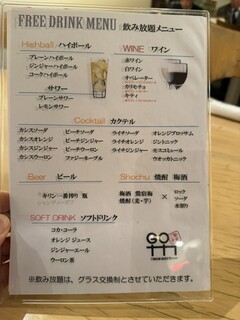 FREE DRINK MENU 飲み放題メニュー
Highball ハイボール
プレーンハイボール
ジンジャーハイボール
コークハイボール
サワー
プレーンサワー
レモンサワー
WINE ワイン
赤ワイン
白ワイン
オペレーター
カリモチョ
キティ
Cocktail カクテル
カシスソーダ ピーチソーダ ライチソーダ オレンジブロッサム
カシスオレンジ ピーチジンジャー ライチオレンジ ジントニック
カシスジンジャー ピーチウーロン ライチジンジャー
カシスウーロン ファジーネーブル ウオッカトニック
Beer ビール
キリン一番搾り 瓶
Shochu 焼酎 梅酒
梅酒 鶯宿梅
焼酎(麦・芋)
×
ロック
ソーダ
水割り
SOFT DRINK ソフトドリンク
コカ・コーラ
オレンジ ジュース
ジンジャーエール
ウーロン茶
GO
※飲み放題は、グラス交換制とさせていただきます。